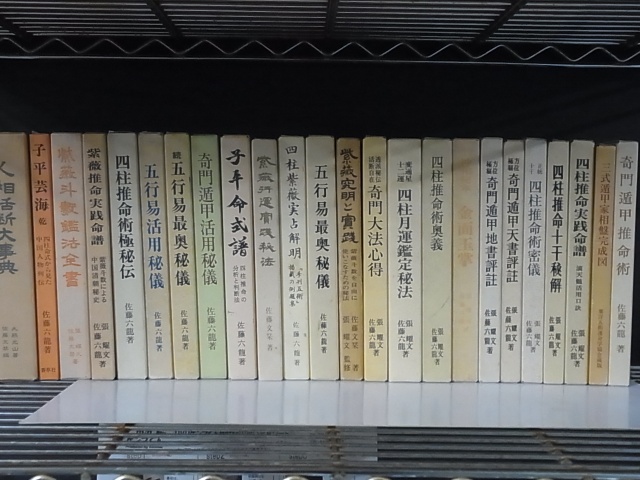 人相活断大事典
子平芸海 乾
佐藤六龍著
紫薇斗数鑑法全書
紫薇推命実践命譜
張耀文
佐藤六龍著
四柱推命術極秘伝
張耀文
佐藤六龍著
五行易活用秘儀
佐藤六龍著
続 五行易最奥秘儀
佐藤六龍著
奇門遁甲活用秘儀
佐藤六龍著
子平命式譜
四柱推命の
分析と判断法
佐藤六龍著
紫薇行運實践秘法
佐藤文栞著
四柱紫薇実占解明
佐藤六龍著
五行易最奥秘儀
佐藤六龍著
紫薇究明と實踐
佐藤文栞著
張耀文監修
奇門大法心得
張耀文
佐藤六龍著
四柱月運鑑定秘法
張耀文
佐藤六龍著
四柱推命術奥義
張耀文
佐藤六龍著
金面玉掌
奇門遁甲地書評註
張耀文著
佐藤六龍著
奇門遁甲天書評註
張耀文著
佐藤六龍著
四柱推命術密儀
張耀文
佐藤六龍著
四柱推命十干秘解
張耀文
佐藤六龍著
四柱推命実践命譜
張耀文
佐藤六龍著
三式遁甲家相盤完成図
奇門遁甲推命術
佐藤六龍著